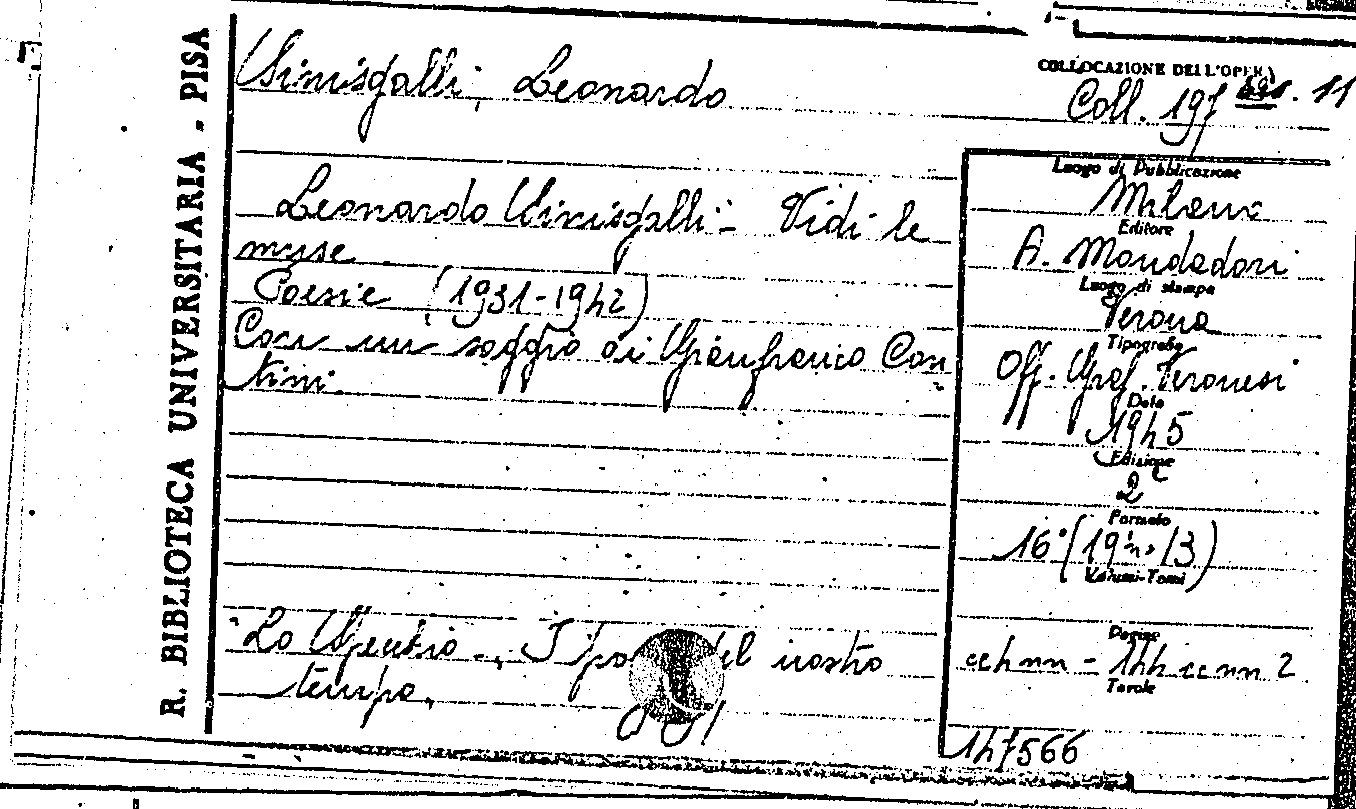 R. BIBLIOTECA UNIVERSITARIA - PISA
Sinisgalli, Leonardo
COLLOCAZIONE DELL'OPERA
Coll. 197 . 11
Leonardo Sinisgalli - Vidi le
muse
Poesie (1931-1942)
Con un saggio di Gianfranco Con
tini.
Lo Specchio - I del nostro
tempo.
Luogo di Pubblicazione
Milano
Editore
A. Mondadori
Luogo di stampa
Verona
Tipografia
Off. Graf. Veronesi
Data
1945
Edizione
2
Formato
16° (19 /3)
Volumi-Tomi
Pagine
cc4nn - 144 cc nn 2
Tavole
147566